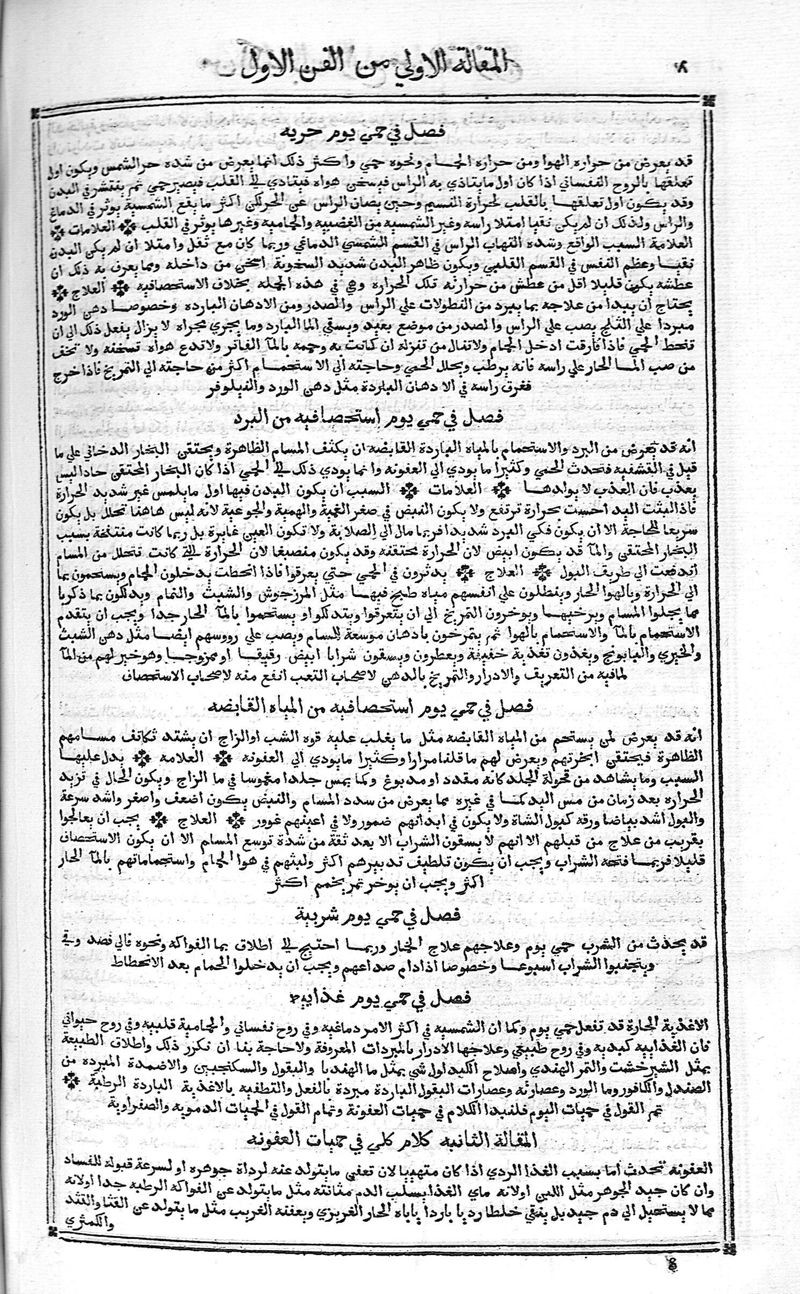 ٨
المقالة الاولي من الفن الاول
فصل في حمي يوم حريه
قد يعرض من حراره الهوا ومن حراره الحمام ونحوه حمي واكثر ذلك انما يعرض من شده حر الشمس ويكون اول
تعلقها بالروح النفساني اذا كان اول ما يتاذي به الراس فيسخن هواه فيتادي الي القلب فيصير حمي ثم ينتشر في البدن
وقد يكون اول تعلقها بالقلب لحرارة النسيم وحين يصان الراس عن الحر لكن اكثر ما يقع الشمسية يوثر في الدماغ
والراس ولذلك ان لم يكن نقيا امتلا راسه وغير الشمسيه من الغضبية والحمامية وغيرها يوثر في القلب ※ العلامات ※
العلامة السبب الواقع وشده التهاب الراس في القسم الشمسي الدماغي وربما كان مع ثقل وامتلا ان لم يكن البدن
نقيا وعظم النفس في القسم القلبي ويكون ظاهر البدن شديد السخونة اسخن من داخله ومما يعرف به ذلك ان
عطشه يكون قليلا اقل من عطش من حرارته تلك الحرارة وهي في هذه الجمله بخلاف الاستحصافيه ※ العلاج ※
يحتاج ان يبدا من علاجه بما يبرد من النطولات علي الراس والصدر ومن الادهان البارده وخصوصا دهن الورد
مبردا علي الثلج يصب علي الراس والصدر من موضع بعيد ويسقي الما البارد وما يجري مجراه لا يزال يفعل ذلك الي ان
تنحط الحمي فاذا فارقت ادخل الحمام ولا تبال من نزله ان كانت به وحممه بالمآ الفاتر ولا تدع هواه تسخنه ولا تخف
من صب المآ الحار علي راسه فانه يرطب ويحلل الحمي وحاجته الي الاستحمام اكثر من حاجته الي التمريخ فاذا خرج
فغرق راسه في الادهان الباردة مثل دهن الورد والنيلوفر
فصل في حمي يوم استحصافيه من البرد
انه قد يعرض من البرد والاستحمام بالمياه الباردة القابضه ان يكثف المسام الظاهرة ويحتقن البخار الدخاني علي ما
قيل في القشفيه فتحدث الحمي وكثيرا ما يودي الي العفونه وانما يودي ذلك الي الحمي اذا كان البخار المحتقن حادا ليس
بعذب فان العذب لا يولدها ※ العلامات ※ السبب ان يكون البدن فيها اول ما يلمس غير شديد الحرارة
فاذا لبثت اليد احست بحرارة ترتفع ولا يكون النبض في صغر الغمية والهمية والجوعية لانه ليس هاهنا تحلل بل يكون
سريعا للحاجة الا ان يكون فكي البرد شديدا فربما مال الي الصلابة ولا تكون العين غايرة بل ربما كانت منتفخة بسبب
البخار المحتقن والمآ قد يكون ابيض لان الحرارة محتقنه وقد يكون منصبغا لان الحرارة التي كانت تتحلل من المسام
اندفعت الي طريق البول ※ العلاج ※ يدثرون في الحمي حتي يعرقوا فاذا انحطت يدخلون الحمام ويستحمون بما
الي الحرارة وبالهوا الحار وينطلون علي انفسهم مياه طبخ فيها مثل المرزجوش والشبث والنمام ويدلكون بما ذكرنا
مما يجلوا المسام ويرخيها ويوخرون التمريخ الي ان يتعرقوا ويتدلكوا ويستحموا بالمآ الحار جدا ويجب ان يتقدم
الاستحمام بالمآ والاستحمام بالهوا ثم يتمرخون بادهان موسعة للمسام ويصب علي رووسهم ايضا مثل دهن الشبث
والخيري والبابونج ويغذون تغذية خفيفة ويعطرون ويسقون شرابا ابيض رقيقا او ممزوجا وهو خير لهم من المآ
لما فيه من التعريف والادرار والتمريخ بالدهن لاصحاب التعب انفع منه لاصحاب الاستحصاف
فصل في حمي يوم استحصافيه من المياه القابضه
انه قد يعرض لمن يستحم من المياه القابضه مثل ما يغلب عليه قوه الشب او الزاج ان يشتد تكاثف مسامهم
الظاهرة فيحتقن ابخرتهم ويعرض لهم ما قلنا مرارا وكثيرا ما يودي الي العفونه ※ العلامه ※ يدل عليها
السبب وما يشاهد من قحولة الجلد كانه مقدد او مدبوغ وكما يمس جلدا مغموسا في ما الزاج ويكون الحال في تزيد
الحراره بعد زمان من مس اليد كما في غيره مما يعرض من سدد المسام والنبض يكون اضعف واصغر واشد سرعة
والبول اشد بياضا ورقه كبول الشاة ولا يكون في ابدانهم ضمور ولا في اعينهم غوور ※ العلاج ※ يجب ان يعالجوا
بقريب من علاج من قبلهم الا انهم لا يسقون الشراب الا بعد ثقة من شدة توسع المسام الا ان يكون الاستحصاف
قليلا فربما فتحه الشراب ويجب ان يكون تلطيف تدبيرهم اكثر ولبثهم في هوا الحمام واستحماماتهم بالمآ الحار
اكثر ويجب ان يوخر تمريخهم اكثر
فصل في حمي يوم شربية
قد يحدث من الشرب حمي يوم وعلاجهم علاج الخمار وربما احتيج الي اطلاق بما الفواكه ونحوه فالي فصد وقي
ويتجنبوا الشراب اسبوعا وخصوصا اذا دام صداعهم ويجب ان يدخلوا الحمام بعد الانحطاط
فصل في حمي يوم غذاييه
الاغذية الحارة قد تفعل حمي يوم وكما ان الشمسيه في اكثر الامر دماغيه وفي روح نفساني والحمامية قلبيه وفي روح حيواني
فان الغذاييه كبديه وفي روح طبيعي وعلاجها الادرار بالمبردات المعروفة ولا حاجة بنا ان نكرر ذلك واطلاق الطبيعة
بمثل الشيرخشت والتمر الهندي واصلاح الكبد اول شي بمثل ما الهندبا والبقول والسكنجبين والاضمدة المبرده من
الصندل والكافور وما الورد وعصارته وعصارات البقول الباردة مبردة بالفعل والتطفيه بالاغذية الباردة الرطبة ※
تم القول في حميات اليوم فلنبدا الكلام في حميات العفونة وتمام القول في الحميات الدمويه والصفراوية
المقالة الثانيه كلام كلي في حميات العفونه
العفونه تحدث اما بسبب الغذا الردي اذا كان متهييا لان تعفن ما يتولد عنه لرداة جوهره او لسرعة قبوله للفساد
وان كان جيد الجوهر مثل اللبن او لانه ماي الغذا يسلب الدم متانته مثل ما يتولد عن الفواكه الرطبه جدا او لانه
مما لا يستحيل الي دم جيد بل يبقي خلطا رديا باردا ياباه الحار الغريزي ويعفنه الغريب مثل ما يتولد عن القثا والقثد
والكمثري